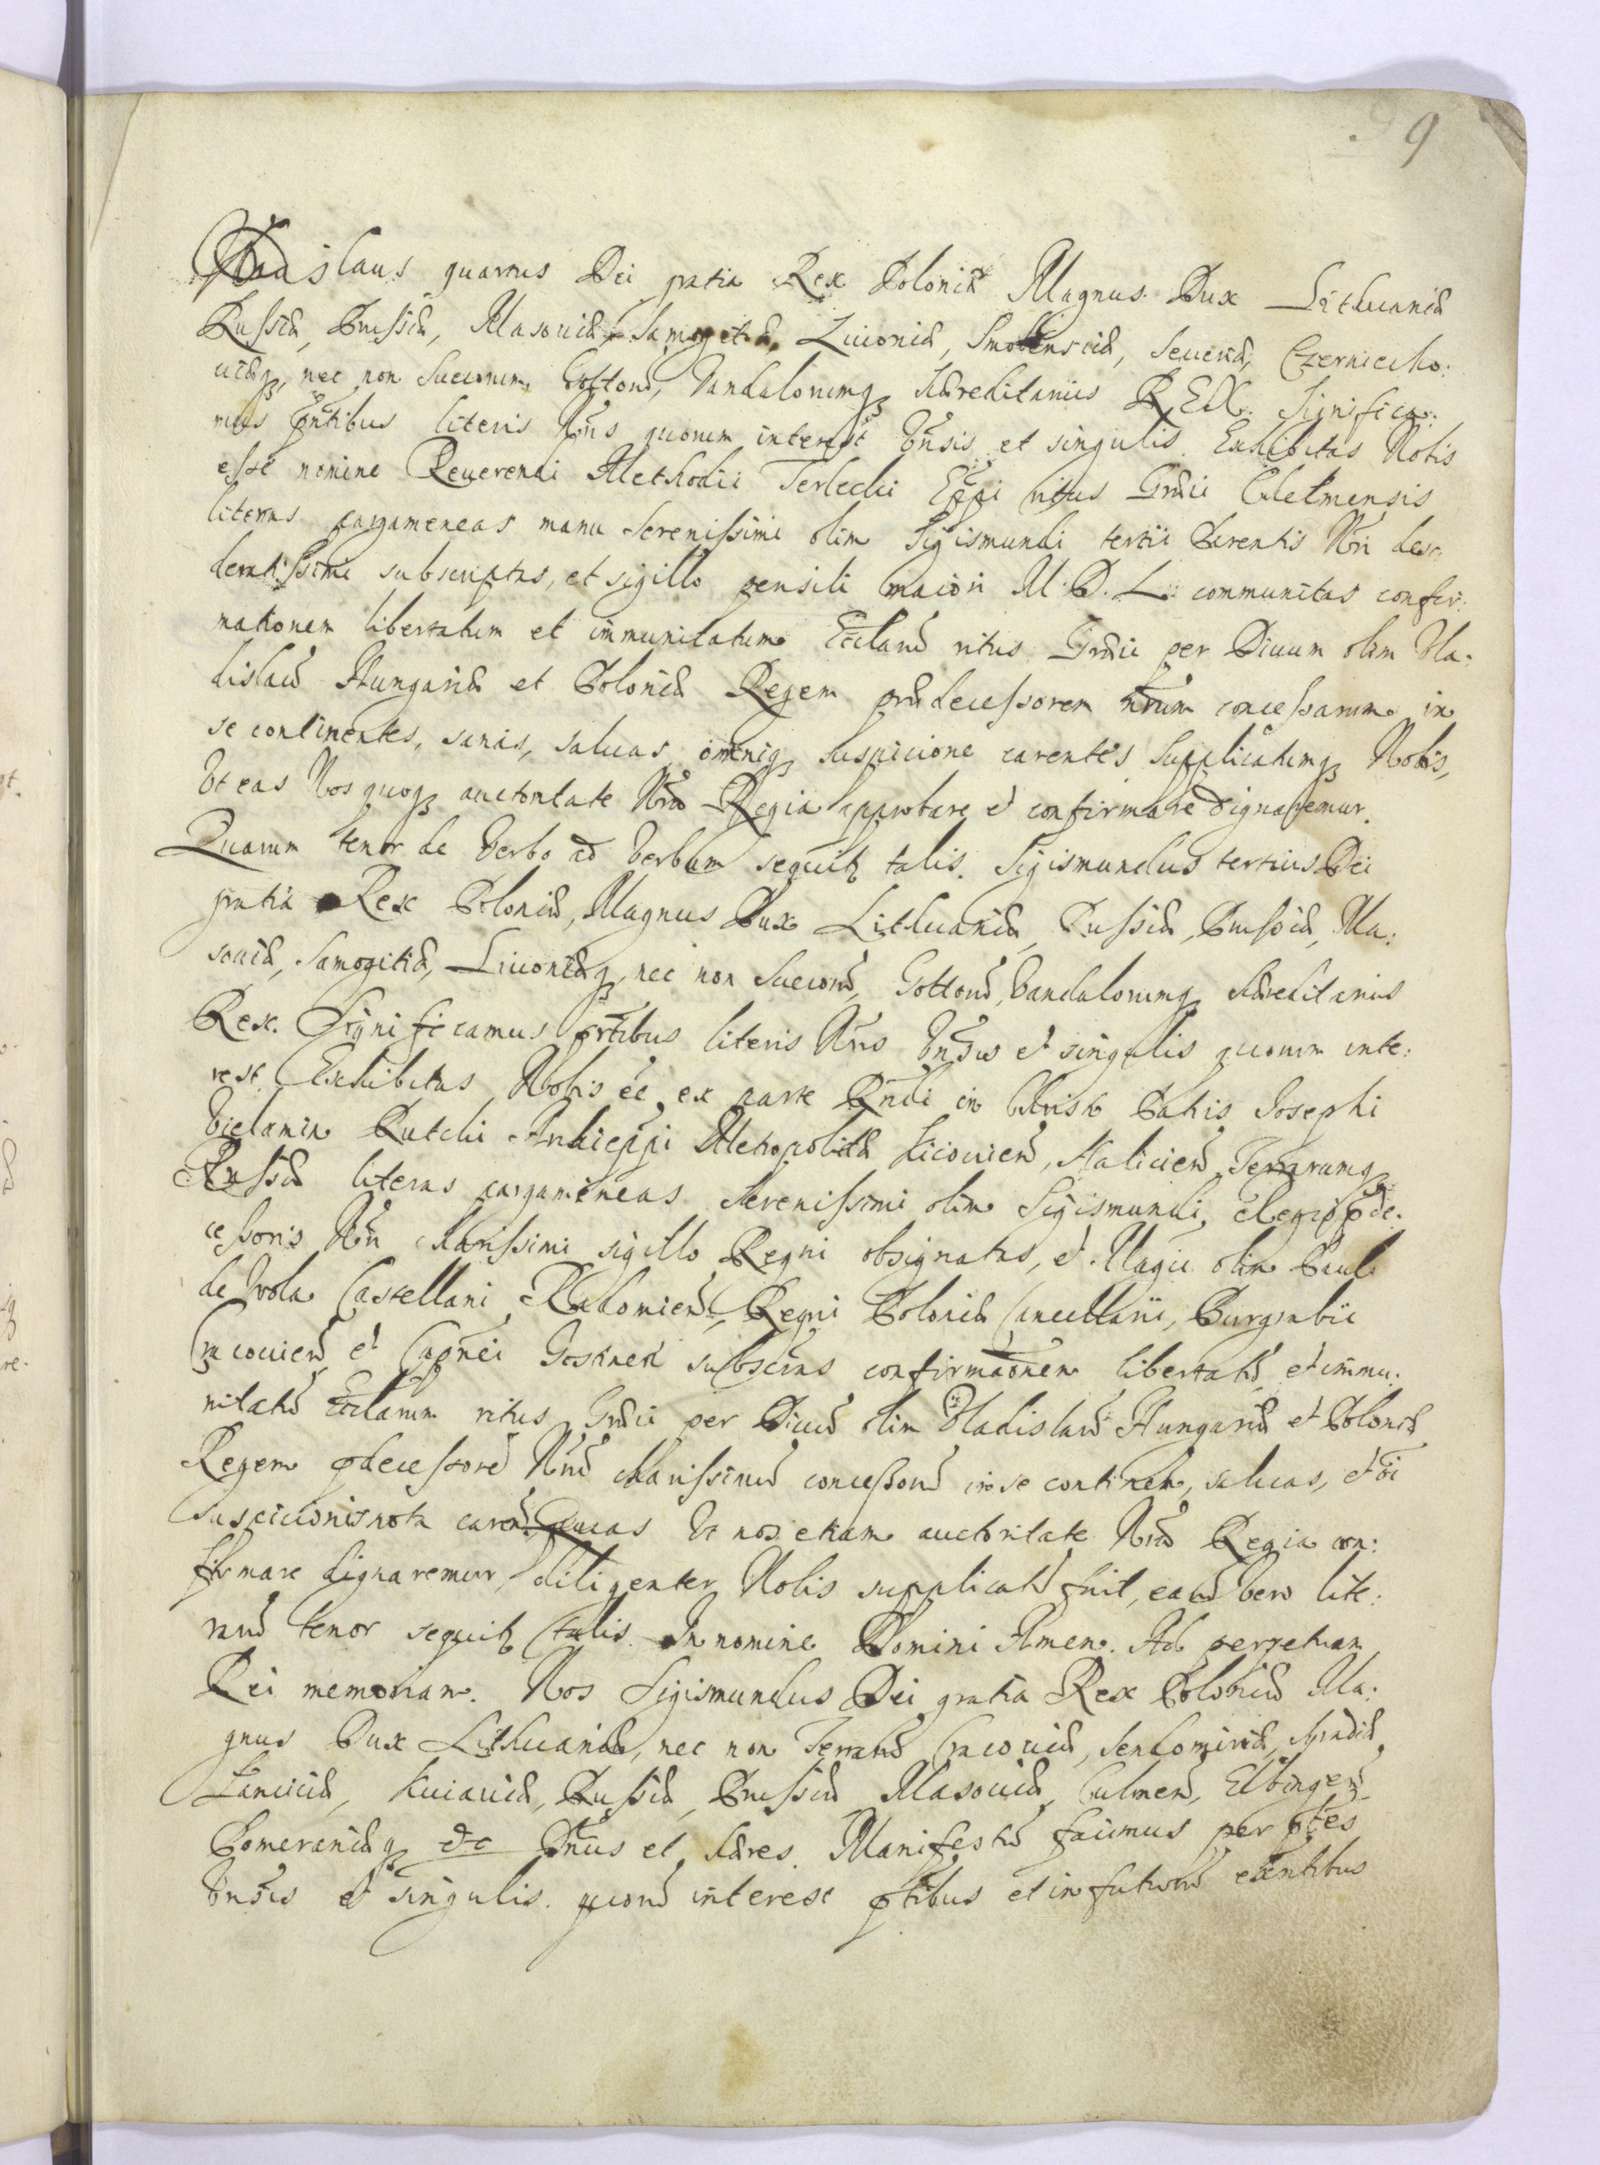 9
Vladislaus quartus Dei gratia Rex Poloniæ Magnus Dux Lithuaniæ
Russiæ, Prussiæ, Masouiæ, Samogetiæ, Liuoniæ, Smolensciæ, Seueriæ, Czerniecho:
uiæq, nec non Suecorum, Gottorū, Vandalorumq hæreditarius REX. Significa:
mus pntibus literis Nris quorum interest Vnsis et singulis. Exhibitas Nobis
esse nomine Reuerendi Methodii Terlecki Eppi ritus Græci Chelmensis
literas pargameneas manu Serenissimi olim Sigismundi tertii Parentis Nri desi:
deratissimi subscriptas, et sigillo pensili maiori M. D. L. communitas confir:
mationem libertatum et immunitatum Ecclarū ritus Græci per Diuum olim Vla:
dislaū Hungariæ et Poloniæ Regem prædecessorem nrum concessarum in
se continentes, sanas, saluas omniq suspicione carentes Supplicatumq Nobis,
Vt eas Nos quoq auctoritate Nra Regia approbare et confirmare dignaremur.
Quarum tenor de Verbo ad Verbum sequitr talis. Sigismundus tertius Dei
gratia Rex Poloniæ, Magnus Dux Lithuaniæ, Russiæ, Prussiæ, Ma:
souiæ, Samogitiæ, Liuoniæq, nec non Suecorū, Gottorū, Vandalorumq hæreditarius
Rex. Significamus pntibus literis Nris Vnsis et singulis quorum inte:
rest. Exhibitas Nobis ee ex parte Rndi in Christo Patris Josephi
Vielamin Rutcki Archieppi Metropolitæ Kiiouien, Haliciens Terrarumq
Russiæ literas pargameneas Serenissimi olim Sigismundi, et Regis pde:
cessoris Nri charissimi sigillo Regni obsignatas, et Magci olim Pauli
de Wola Castellani Radomien, Regni Poloniæ Cancellarii, Burgrabii
Cracouien et Capnei Gostinen subscrins confirmaonem libertatū et immu:
nitatū Ecclarum ritus Græci per Diuū olim Vladislaū Hungariæ et Poloniæ
Regem pdecessorē Nrū charissimū concessorū in se continen, saluas, et oi
suspicionis nota caren. Vt nos etiam auctoritate Nra Regia con:
firmare dignaremur diligenter Nobis supplicatū fuit, earū Vero lite:
rarū tenor sequitr talis. In nomine Domini Amen. Ad perpetuam
Rei memoriam. Nos Sigismundus Dei gratia Rex Poloniæ Ma:
gnus Dux Lithuaniæ, nec non Terrarū Cracouiæ, Sendomiriæ, Siradiæ
Lanciciæ, Kuiauiæ, Russiæ, Prussiæ Masouiæ, Culmen, Elbingen
Pomeraniæq &c Dnus et hæres. Manifestū facimus per pntes
Vnsis et singulis. quorū interest pntibus et in futurū exntibus